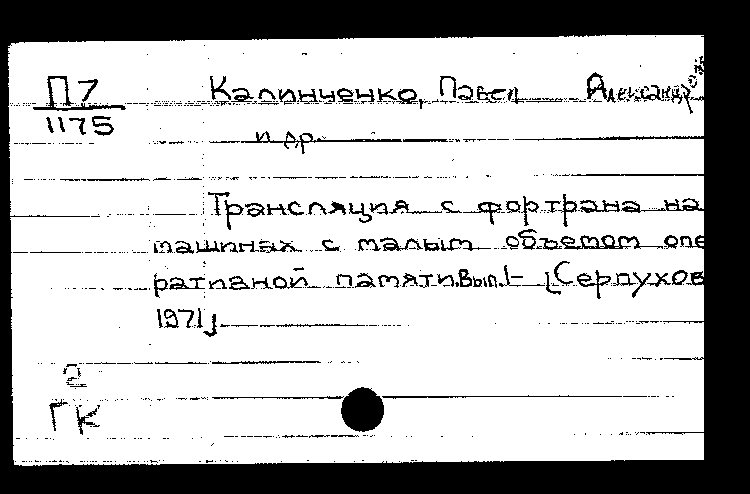 П7
1175
Калинченко, Павел Александро
и др.
Трансляция с фортрана на
машинах с малым объемом опе
ративной памяти. Вып. 1 – [Серпухов
1971].
2
ГК